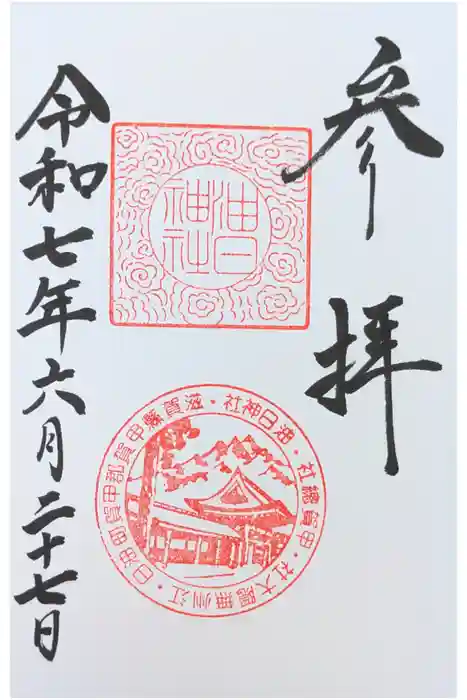 参拝
油日
神社
油日神社・滋賀縣甲賀郡甲賀町油日・江州無隠大社・甲賀總社・
令和七年六月二十七日